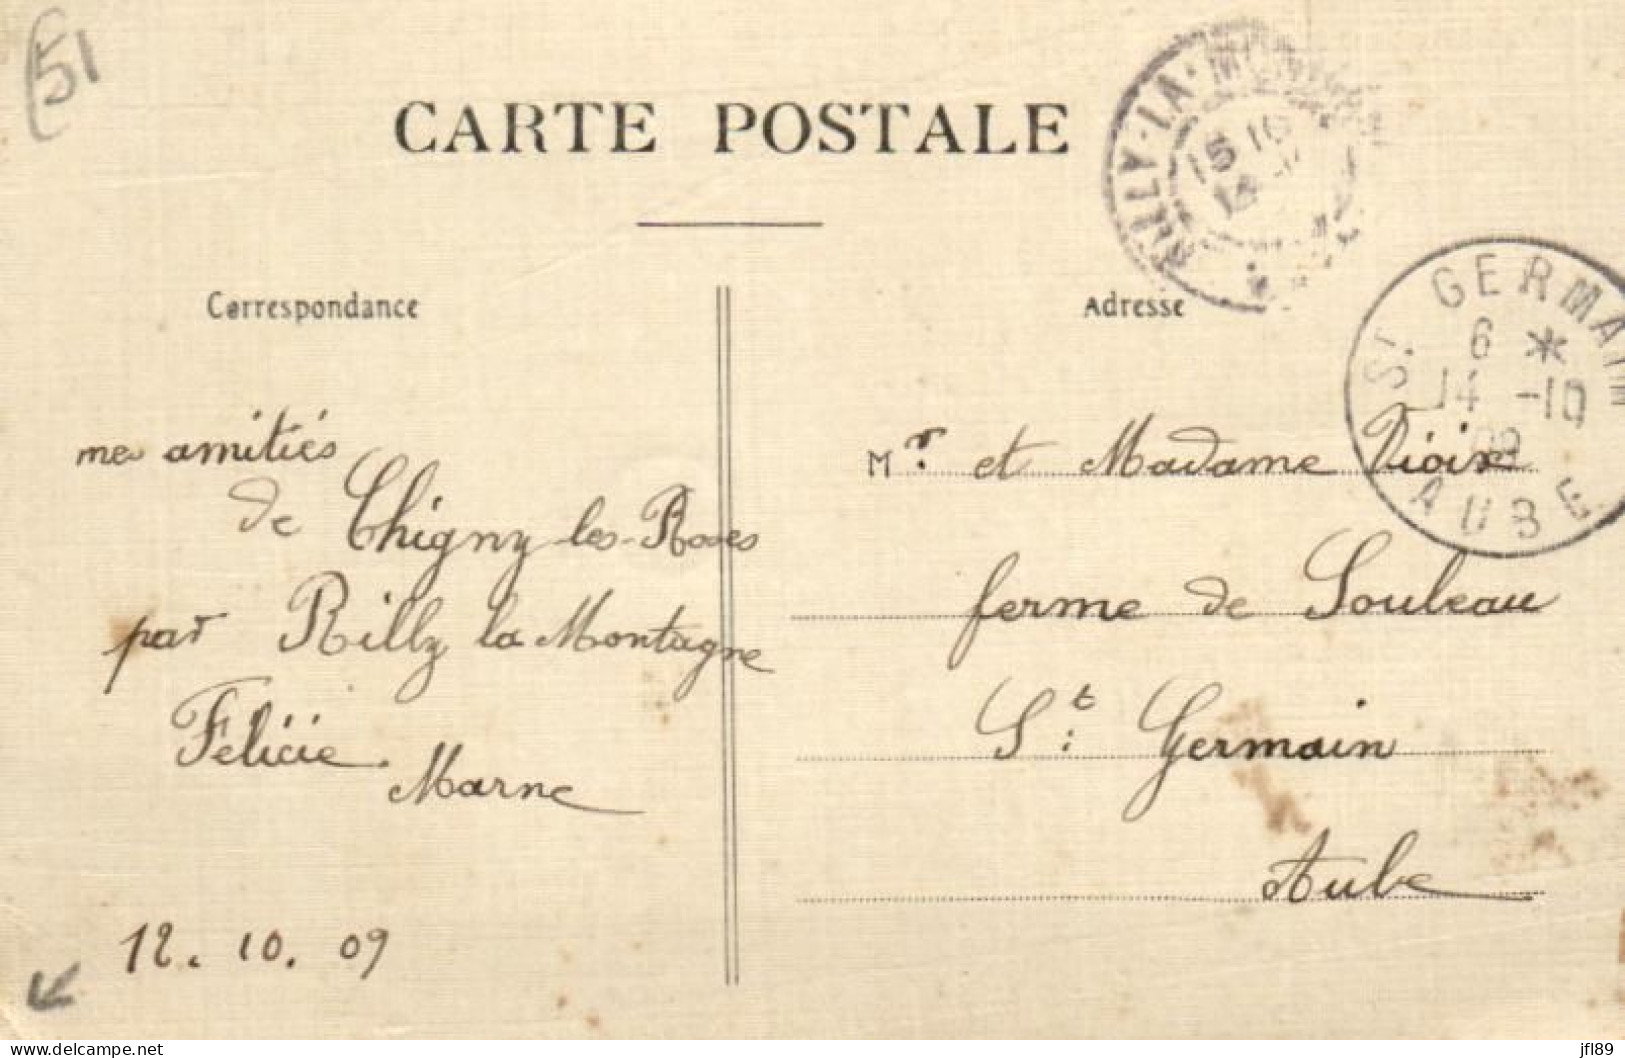 51
CARTE POSTALE
RILLY-LA-MONTAGNE
Correspondance
Adresse
St GERMAIN
6 *
14 -10
09
AUBE
mes amitiés
de Chigny-les-Roses
par Rilly la Montagne
Félicie
Marne
12. 10. 09
Mr. et Madame
ferme de Souleau
St. Germain
Aube
delcampe.net
jfl89